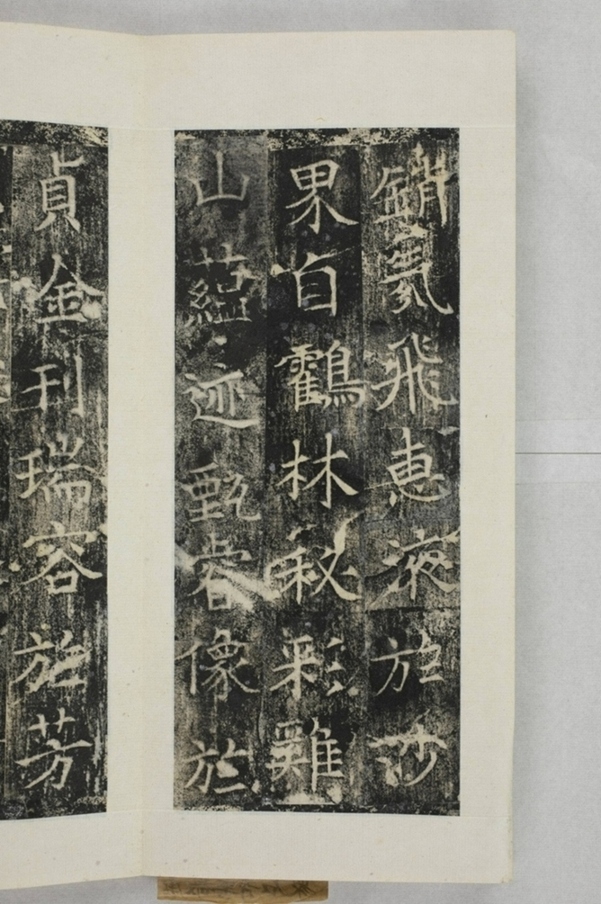 銷氛飛惠液於沙
界自鸖林秘彩雞
山蘊迹甄像於
貞金刊瑞容於芳